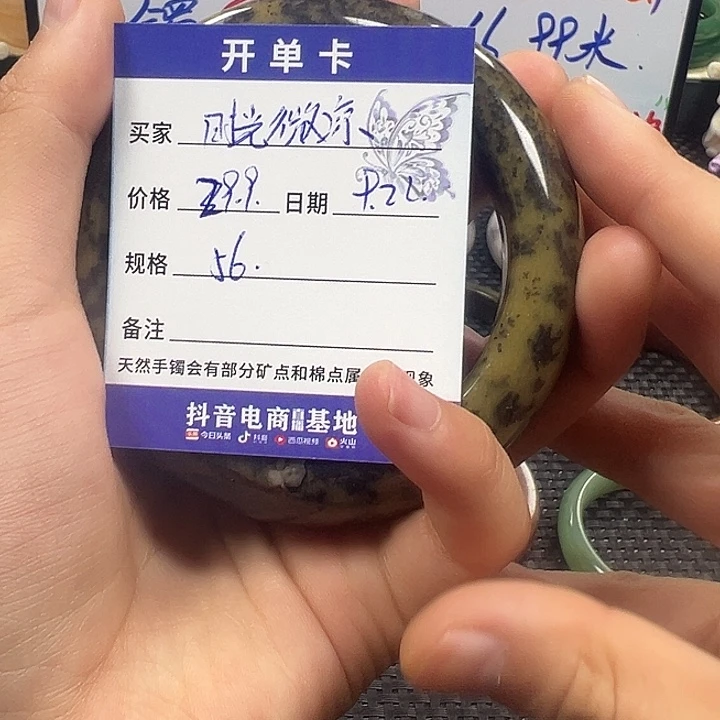 66.99米.
开单卡
买家 时光微凉
价格 299. 日期 9.22.
规格 56.
备注
天然手镯会有部分矿点和棉点属 现象
抖音电商直播基地
今日头条 抖音 西瓜视频 火山